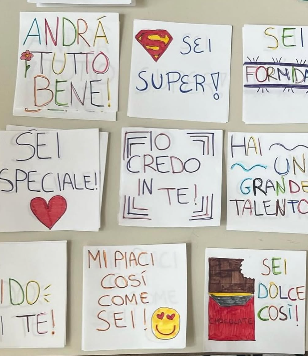 ANDRÀ
TUTTO
BENE!
S SEI
SUPER!
SEI
SEI
SPECIALE!!
IO
CREDO
IN TE!
HAI
UN
GRANDE
TALENTO
TE!
MI PIACI
COSÍ
COME
SEI!!
SEI
DOLCE
COSÍ!
CHOCOLATE